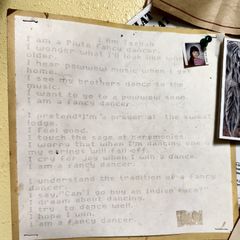 I am a Piute Fancy dancer.
I wonder what I'll look like when I get
older.
I hear powwow music when I get
home.
I see my brothers dance to the
music.
I want to go to a powwow soon.
I am a fancy dancer.
I pretend I'm a prayer at the sweat
lodge.
I feel good.
I touch the sage at ceremonies.
I worry that when I'm dancing one of
my will fall off.
I cry for joy when I win a dance.
I am a fancy dancer.
I understand the tradition of a fancy
dancer.
I say, "Can't go buy an Indian taco?"
I dream about dancing.
I try to dance well.
I hope I win.
I am a fancy dancer.